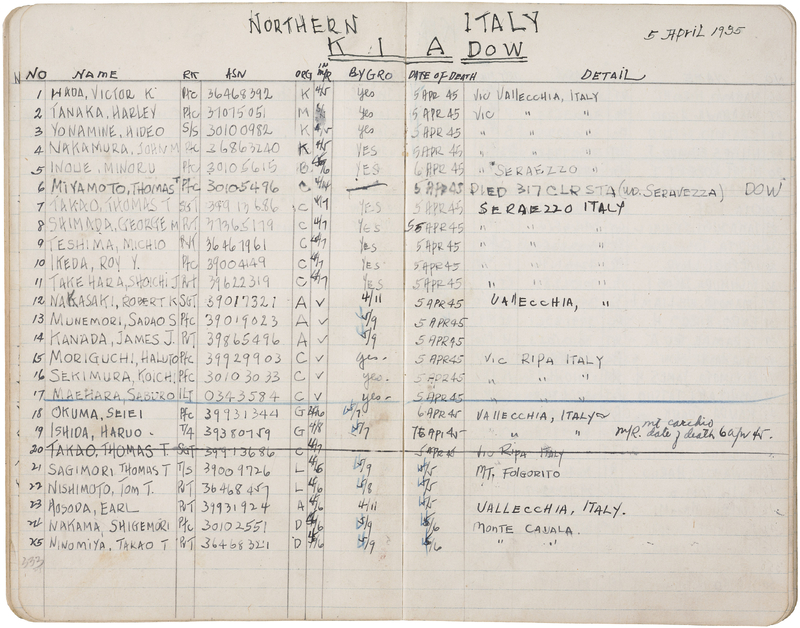 NORTHERN ITALY
5 April 1935
K I A DOW
NO NAME RK ASN ORG BY GRO DATE OF DEATH DETAIL
1 HADA, VICTOR K. Pfc 36468392 K 4/5 yes 5 APR 45 Vic VALLECCHIA, ITALY
2 TANAKA, HARLEY Pfc 37075051 M yes 5 APR 45 Vic " "
3 YONAMINE, HIDEO S/S 30100982 K yes 5 APR 45 " "
4 NAKAMURA, JOHN M Pfc 36863240 K 4/5 YES 5 APR 45 " "
5 INOUE, MINORU Pfc 30105615 YES 6 APR 45 " SERAEZZO "
6 MIYAMOTO, THOMAS T Pfc 30105496 C 4/4 5 APR 45 DIED 317 CLR STA (WD. SERAVEZZA) DOW
7 TAKAO, THOMAS T SGT 39913686 C 4/7 YES 5 APR 45 SERAEZZO ITALY
8 SHIMADA, GEORGE M PVT 37365179 C 4/7 YES 5 APR 45 " "
9 TESHIMA, MICHIO PVT 36461961 C 4/7 YES 5 APR 45 " "
10 IKEDA, ROY Y. Pfc 39004149 C 4/7 YES 5 APR 45 " "
11 TAKEHARA, SHOICHI J PVT 39622319 C 4/7 YES 5 APR 45 " "
12 NAKASAKI, ROBERT K SGT 39017321 A ✓ 4/11 5 APR 45 VALLECCHIA, "
13 MUNEMORI, SADAO S Pfc 39019023 A ✓ 5/9 5 APR 45
14 KANADA, JAMES J. PVT 39865496 A ✓ 5/9 5 APR 45
15 MORIGUCHI, HALUTO Pfc 39929903 C ✓ yes. 5 APR 45 Vic RIPA ITALY
16 SEKIMURA, KOICHI Pfc 30103033 C ✓ yes. 5 APR 45 " " "
17 MAEHARA, SABURO 1LT 0343584 C ✓ yes. 5 APR 45 " " "
18 OKUMA, SEIEI Pfc 39931344 G 5/7 6 APR 45 VALLECCHIA, ITALY
19 ISHIDA, HARUO T/4 39380759 G 4/8 5/7 APR 45 " " M/R. date of death 6 apr 45.
20 TAKAO, THOMAS T. SGT 39913686 C 4/7 5 APR 45 Vic RIPA ITALY
21 SAGIMORI THOMAS T T/5 39009726 L 5/9 4/5 MT. FOLGORITO
22 NISHIMOTO, TOM T. PVT 36468457 L 5/8 4/5 " "
23 HOSODA, EARL PVT 39931924 A 4/11 4/5 VALLECCHIA, ITALY.
24 NAKAMA, SHIGENORI Pfc 30102551 D 5/9 4/6 MONTE CAUALA.
25 NINOMIYA, TAKAO T PVT 36468321 D 5/9 4/6 " "